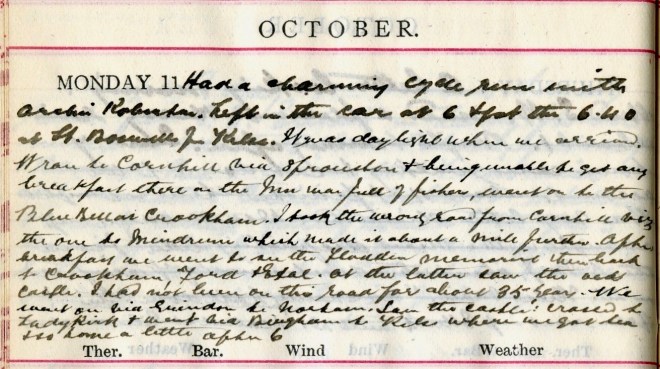 OCTOBER.
MONDAY 11 Had a charming cycle run with
Archie Robertson. Left in the car at 6 & got the 6.40
at St. Boswells for Kelso. It was daylight when we arrived.
Went to Cornhill via Sprouston & being unable to get any
breakfast there as the Inn was full of fishers, went on to the
Blue Bell at Crookham. I took the wrong road from Cornhill viz
the one to Mindrum which made it about a mile further. After
breakfast we went to see the Flodden memorial then back
to Crookham, Ford & Etal. At the latter saw the old
castle. I had not been on this road for about 35 years. We
went on via to Norham. Saw the castle: crossed to
Ladykirk & went via Birgham to Kelso where we got tea
& so home a little after 6
Ther. Bar. Wind Weather